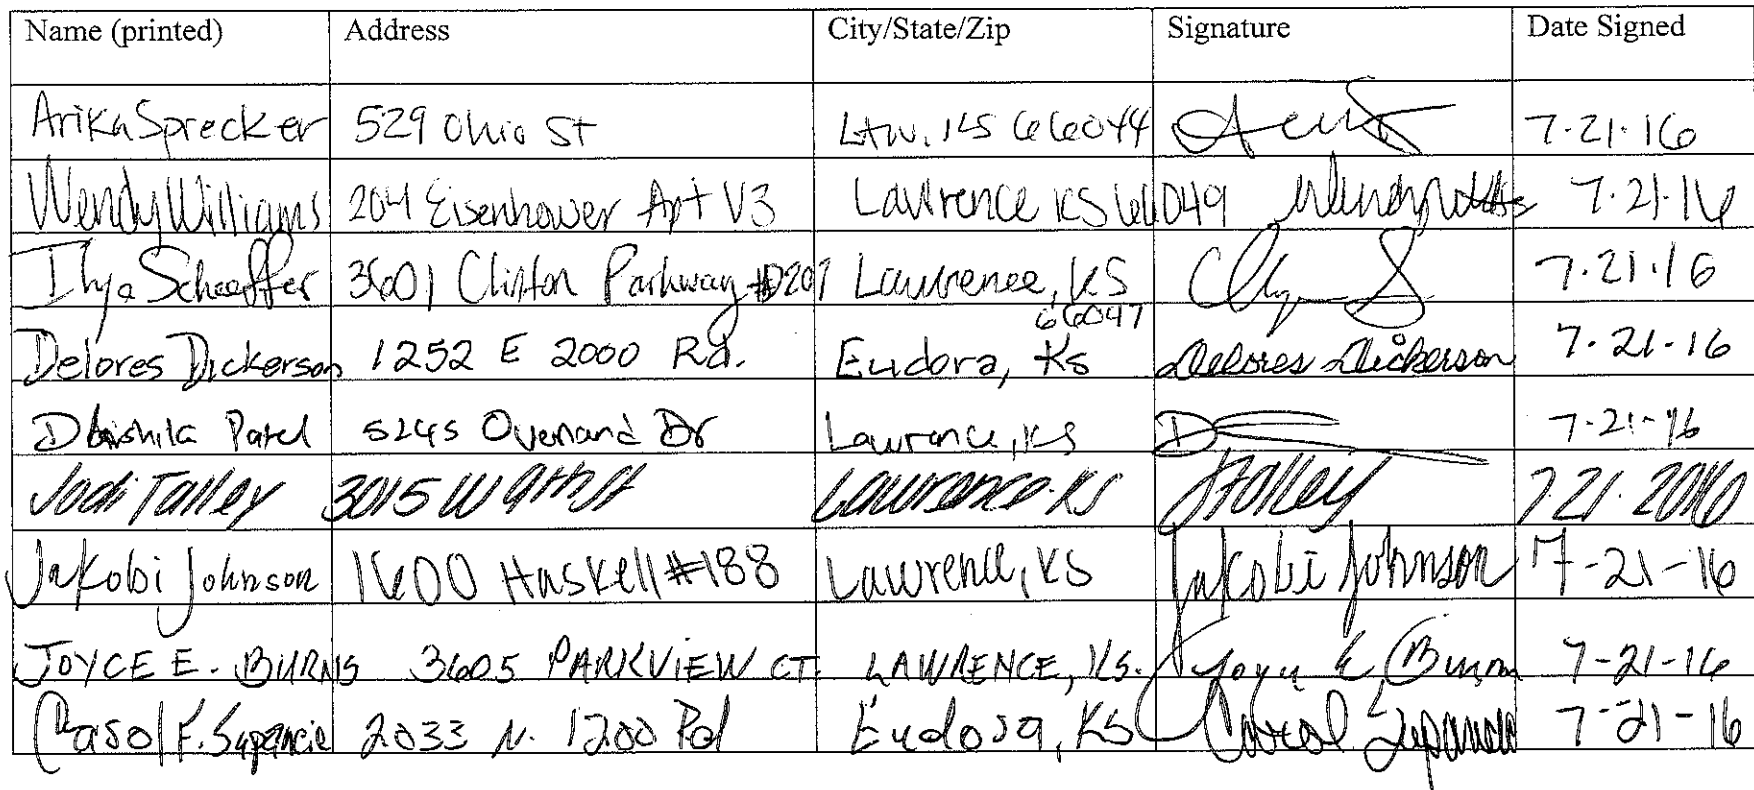 Name (printed) Address City/State/Zip Signature Date Signed
Arika Sprecker 529 Ohio St Law. KS 66044 7-21-16
Wendy Williams 204 Eisenhower Apt V3 Lawrence KS 66049 7-21-16
Ilya Schaeffer 3601 Clinton Parkway #D207 Lawrence, KS 7-21-16
66047
Delores Dickerson 1252 E 2000 Rd. Eudora, Ks Delores Dickerson 7-21-16
Patel 5245 Dr Lawrence, KS 7-21-16
Jodi Talley 3015 W St Lawrence KS JTalley 7.21.2016
Jakobi Johnson 1600 Haskell #188 Lawrence, KS Jakobi Johnson 7-21-16
JOYCE E. BURNS 3605 PARKVIEW CT. LAWRENCE, KS. Joyce E. Burns 7-21-16
Carol F. 2033 N. 1200 Rd Eudora, KS Carol 7-21-16